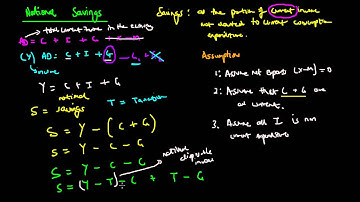 National Savings
Savings: as the portion of current income
not devoted to current consumption
expenditure.
total current income in the economy
AD = C + I + G + X - M
(Y) AD: C + I + G
income
Assumption
Y = C + I + G
1: Assume net exports (X-M) = 0
national
S = savings
T = Taxation
2: Assume that C + G are
all current.
S = Y - (C + G)
3. Assume all I is non
current expenditure
S = Y - C - G
national
disposable
income
S = Y - C - G
S = (Y - T) - C + T - G